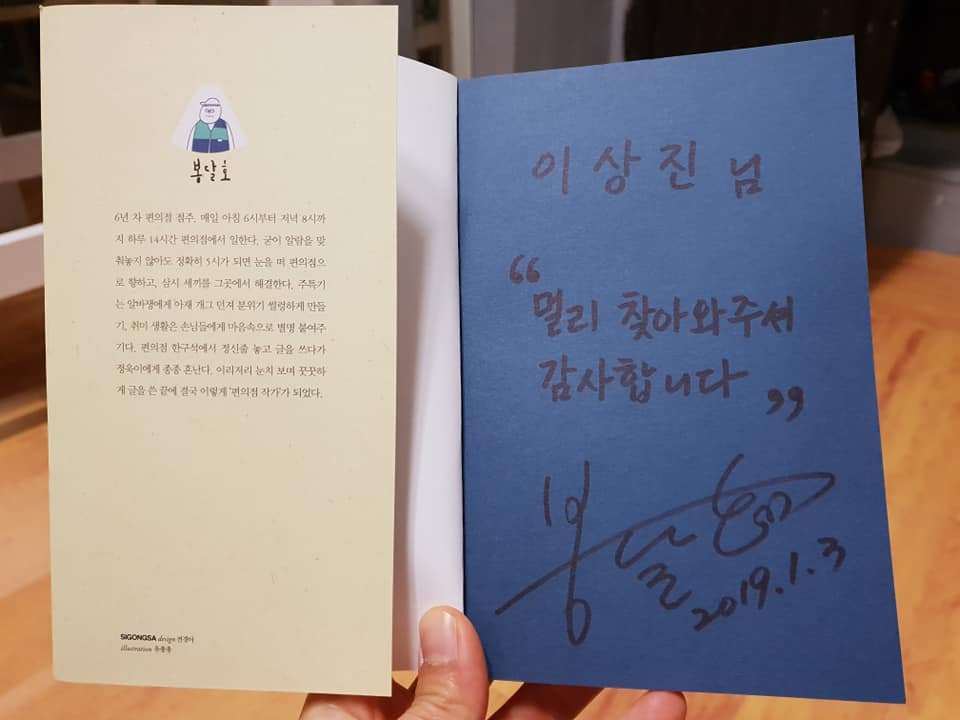 봉달호
6년 차 편의점 점주. 매일 아침 6시부터 저녁 8시까
지 하루 14시간 편의점에서 일한다. 굳이 알람을 맞
춰놓지 않아도 정확히 5시가 되면 눈을 떠 편의점으
로 향하고, 삼시 세끼를 그곳에서 해결한다. 주특기
는 알바생에게 아재 개그 던져 분위기 썰렁하게 만들
기, 취미 생활은 손님들에게 마음속으로 별명 붙여주
기다. 편의점 한구석에서 정신줄 놓고 글을 쓰다가
정욱이에게 종종 혼난다. 이리저리 눈치 보며 꿋꿋하
게 글을 쓴 끝에 결국 이렇게 '편의점 작가'가 되었다.
SIGONGSA design 전경아
illustration 유총총
이상진 님
“멀리 찾아와주셔
감사합니다”
봉달호
2019.1.3